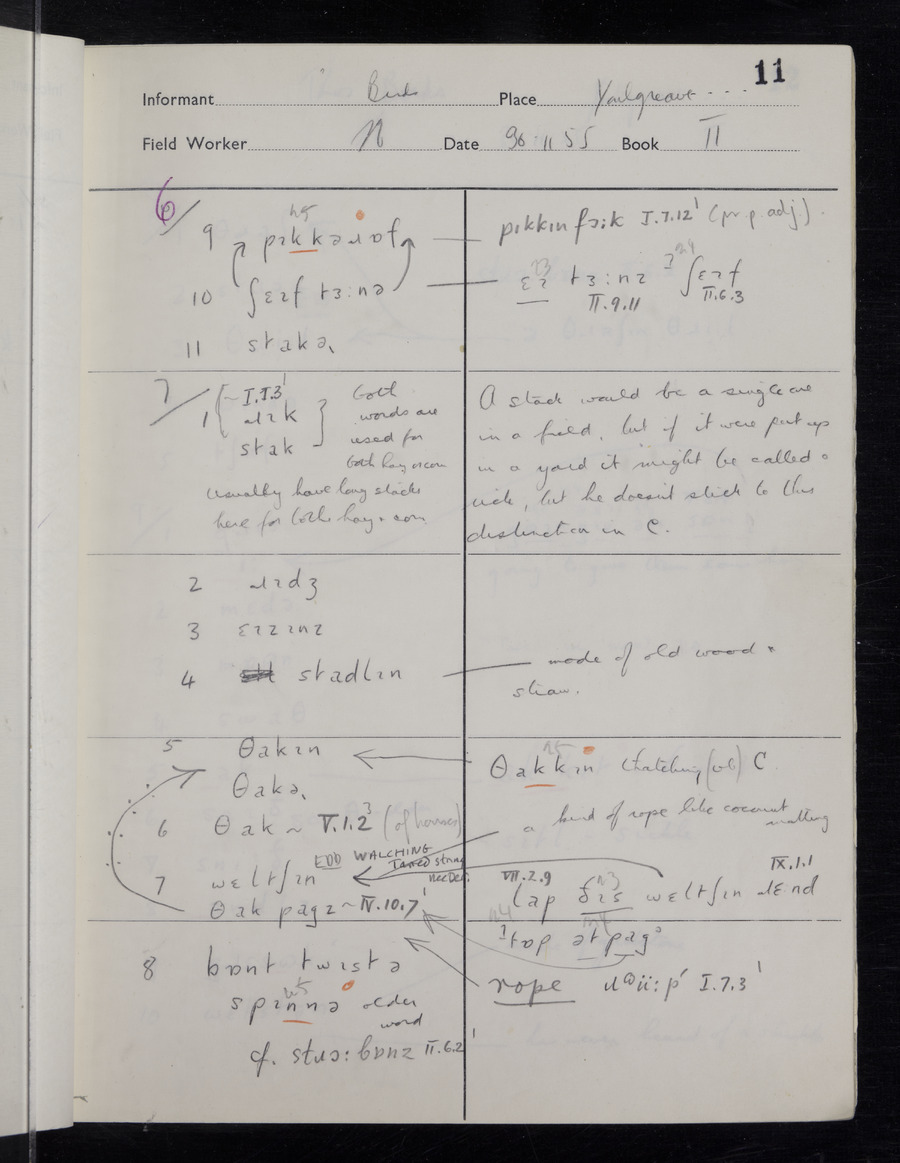 11
Informant Birds Place Youlgreave
Field Worker N Date 30.11 55 Book II
6/
9 pɪkkəɹɒf
pɪkkɪn fɔɪk I.7.12 (pr. p. adj.)
n5
10 ʃɛɪf tɜːnə
n3 n4
ɛɪ tɜːnz ʃɛɪf
II.9.11 II.6.3
11 stakə
7/
1 ~ I.I.3
ɹɪk
stak
both words are used for both hay & corn
usually have long stacks
here for both hay & corn
A stack would be a single one
in a field, but if it were put up
in a yard it might be called a
rick, but he doesn't stick to this
distinction in C.
2 ɹɪdʒ
3 ɛɪzɪnz
4 stadlɪn
made of old wood &
straw.
5 θakɪn
n5
θakkɪn thatching (vb) C
θakə
6 θak ~ V.1.2 (of houses)
a kind of rope like coconut
matting
EDD WALCHING
TARRED string
7 wɛltʃɪn
VII.2.9 n3 IX.1.1
lap ðɪs wɛltʃɪn ɹɛnd
θak pagz ~ IV.10.7
n4
tɒp ət pag
8 bɒnt twɪstə
rope I.7.3
n5
spɪnnə older
word
cf. stɹɔː bɒnz II.6.2